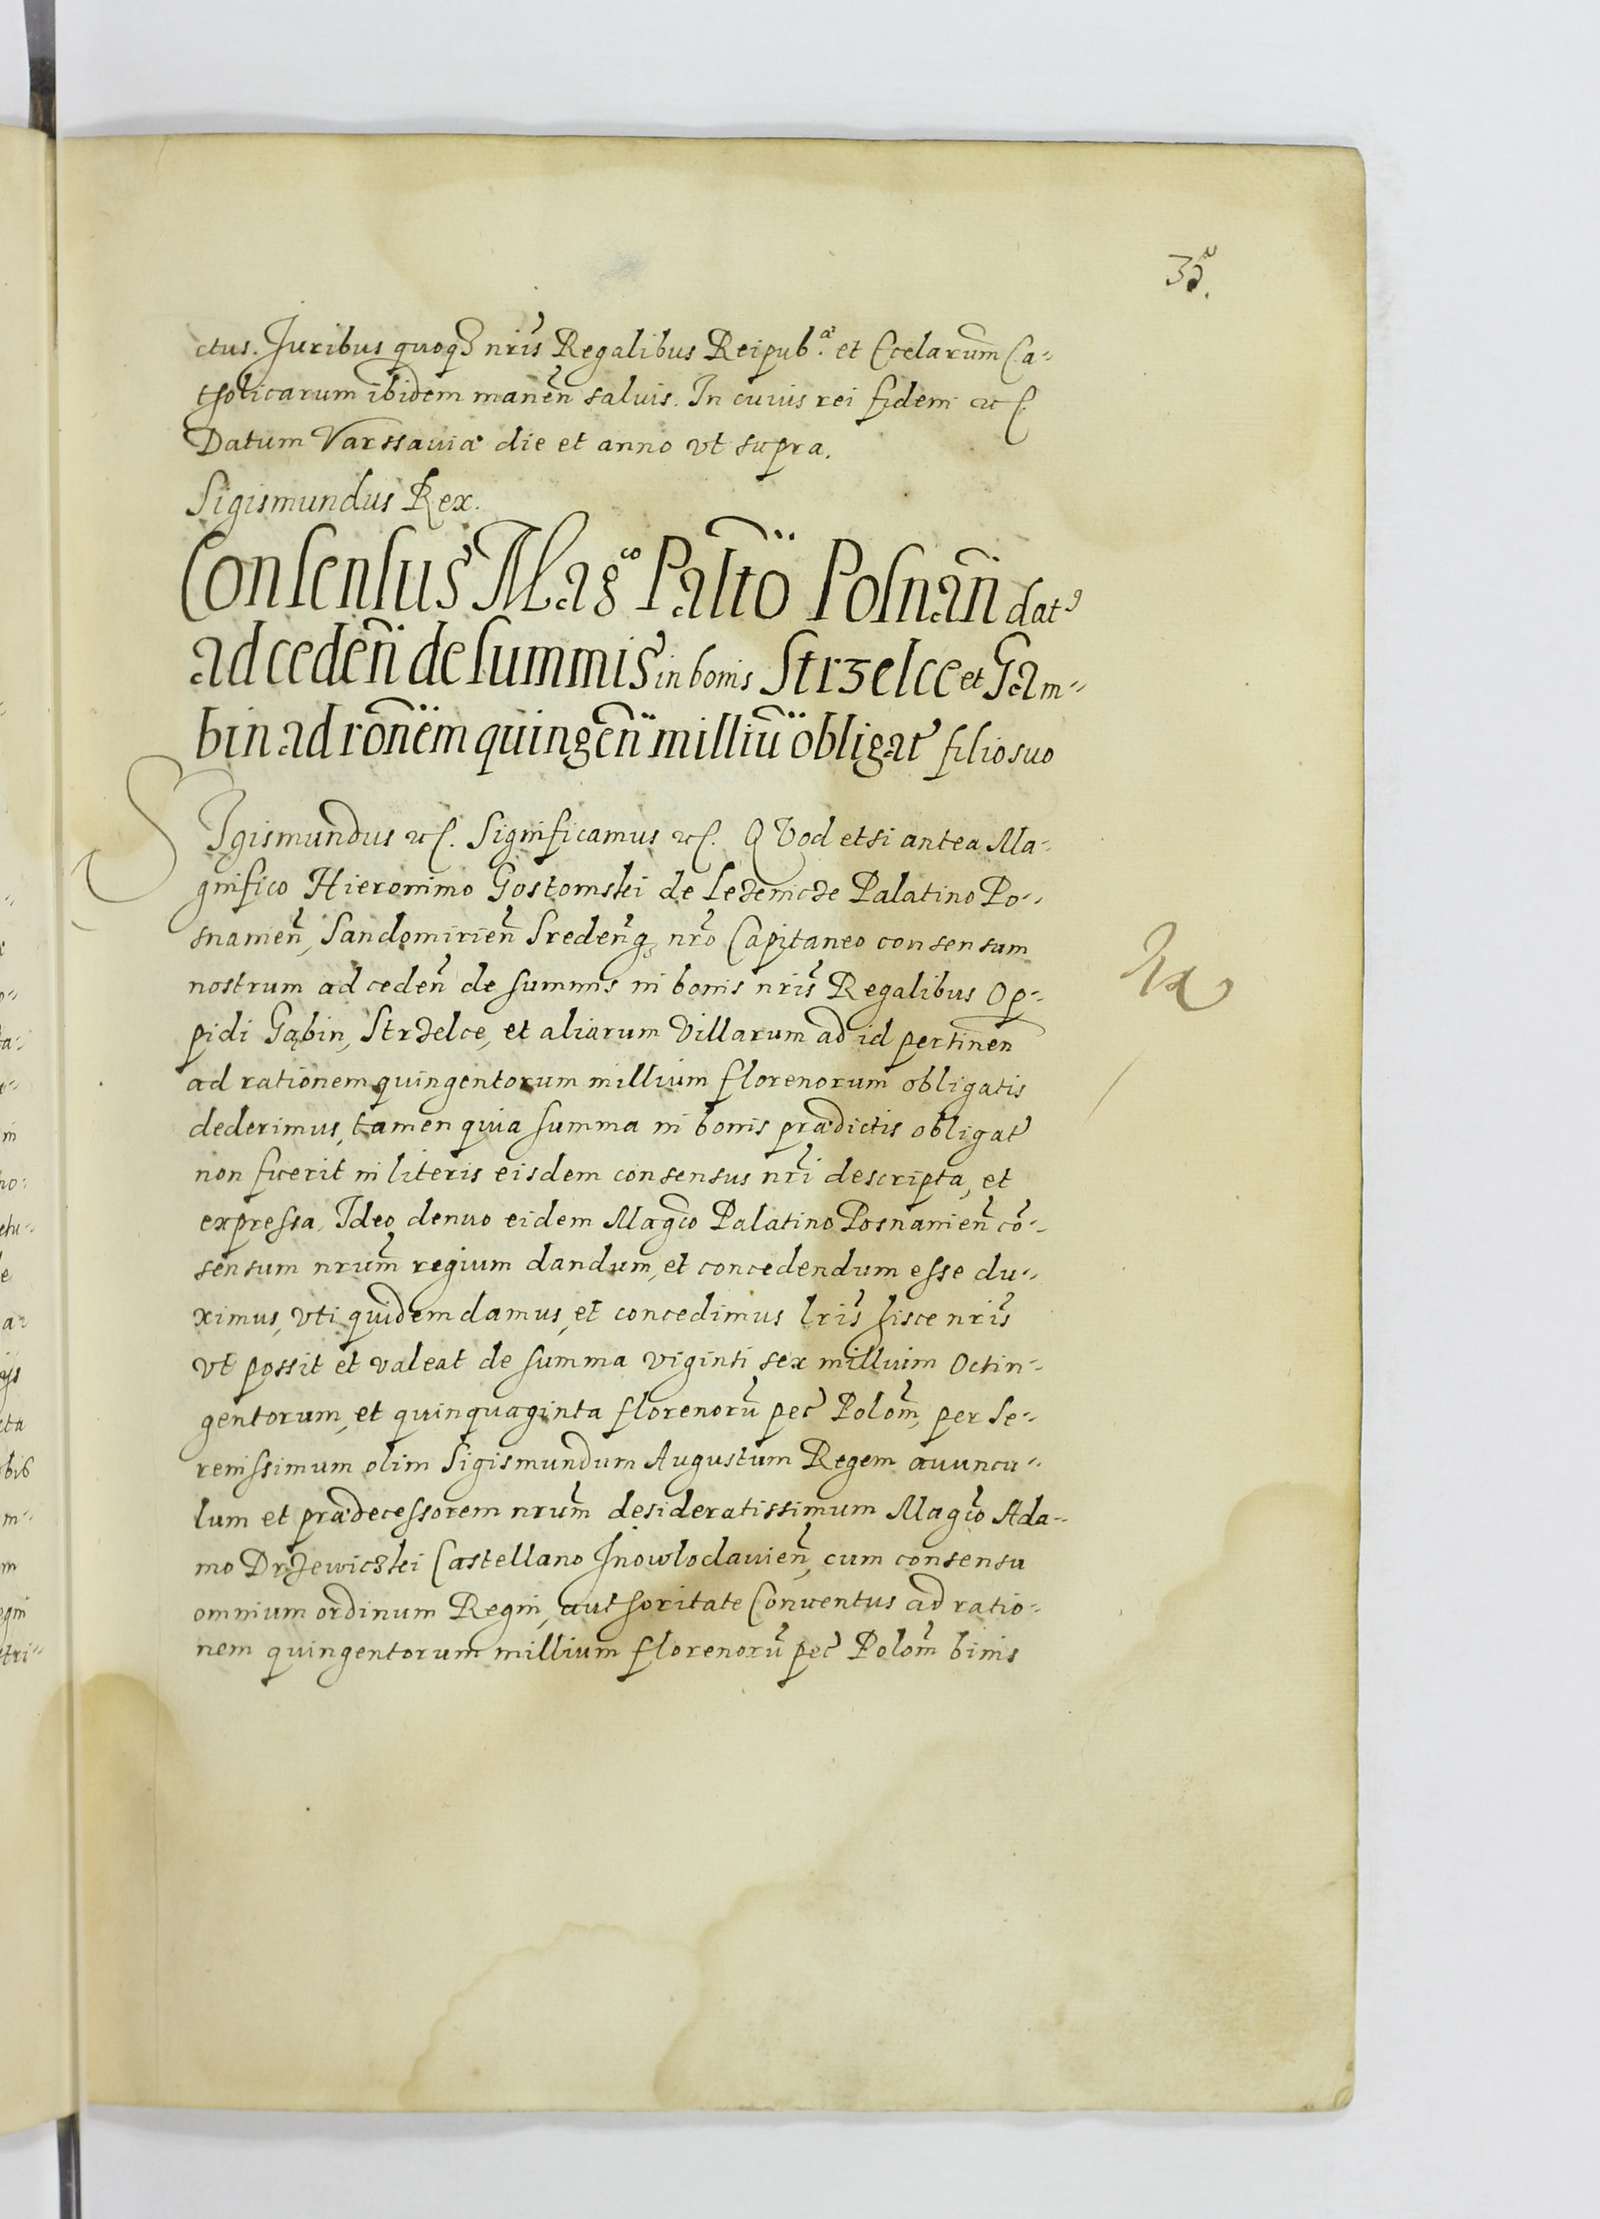 ctus. Juribus quoq₃ nr̃is Regalibus Reipub.æ et Eccl̃arum Ca-
tholicarum ibidem maneñ saluis. In cuius rei fidem etc.
Datum Varssauiæ die et anno vt supra.
Sigismundus Rex.
Consensus Mag.co Palt̃o Posnañ dat9
ad cedeñ de summis in bonis Strzelce et Gam-
bin ad rõnem quingeñ milliũ obligat' filio suo
SIgismundus etc. Significamus etc. QVod etsi antea Ma-
gnifico Hieronimo Gostomski de Lezenicze Palatino Po-
snanieñ, Sandomirieñ Sredeñq₃ nr̃o Capitaneo consensum
nostrum ad cedeñ de summis in bonis nr̃is Regalibus Op-
pidi Gąbin, Strzelce, et aliarum Villarum ad id pertineñ
ad rationem quingentorum millium florenorum obligatis
dederimus, tamen quia summa in bonis prædictis obligat'
non fuerit in literis eisdem consensus nr̃i descripta, et
expressa, Ideo denuo eidem Mag̃co Palatino Posnanieñ cõ-
sensum nr̃um regium dandum, et concedendum esse du-
ximus, vti quidem damus, et concedimus lr̃is hisce nr̃is
vt possit et valeat de summa viginti sex millium Octin-
gentorum, et quinquaginta florenorũ pec' Poloñ, per Se-
renissimum olim Sigismundum Augustum Regem auuncu-
lum et prædecessorem nr̃um desideratissimum Mag̃co Ada-
mo Drzewiczki Castellano Jnowlodauieñ, cum consensu
omnium ordinum Regni, authoritate Conuentus ad ratio-
nem quingentorum millium florenorũ pec' Poloñ binis